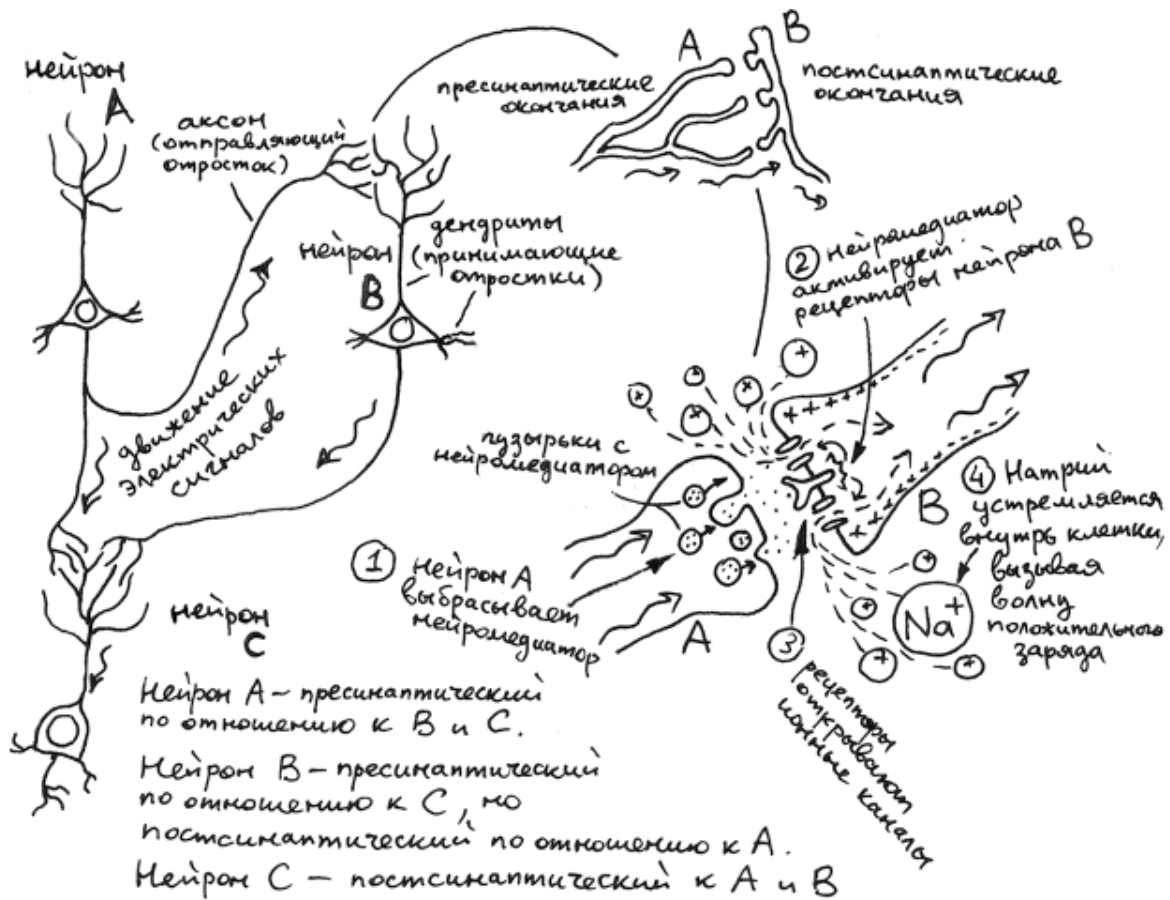 нейрон
A
аксон
(отправляющий
отросток)
A
B
пресинаптические
окончания
постсинаптические
окончания
нейрон
B
дендриты
(принимающие
отростки)
движение
электрических
сигналов
② Нейромедиатор
активирует
рецепторы нейрона B
пузырьки с
нейромедиатором
① Нейрон A
выбрасывает
нейромедиатор
A
B
③ рецепторы
открывают
ионные каналы
④ Натрий
устремляется
внутрь клетки,
вызывая
волну
положительного
заряда
Na⁺
нейрон
C
Нейрон A – пресинаптический
по отношению к B и C.
Нейрон B – пресинаптический
по отношению к C, но
постсинаптический по отношению к A.
Нейрон C – постсинаптический к A и B